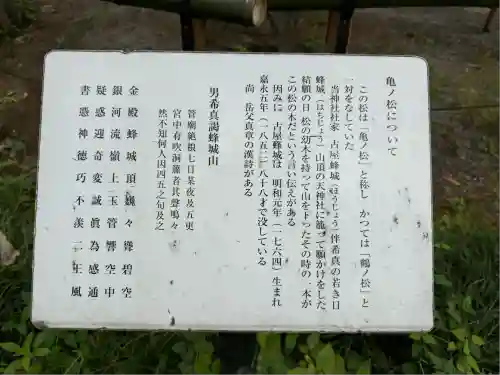 亀ノ松について
この松は「亀ノ松」と称し かつては「鶴ノ松」と
一対をなしていた
当神社社家 古屋蜂城(ほうじょう)伴希真の若き日
蜂城(はちじょう)山頂の天神社に籠って願かけをした
結願の日 松の幼木を持って山を下ったその時の一本が
この松の木だという言い伝えがある
因みに 古屋蜂城は 明和元年(一七六四)生まれ
嘉永五年(一八五二)八十八才で没している
尚 岳父真章の漢詩がある
男希真謁蜂城山
菅廟絶根七日某夜及五更
宮中有吹洞簫者其聲鳴々
然不知何人因四五之句及之
金殿蜂城頂巍々聳碧空
銀河流嶺上玉管響空中
疑惑迎奇変誠眞為感通
書憑神徳巧不羨二王風